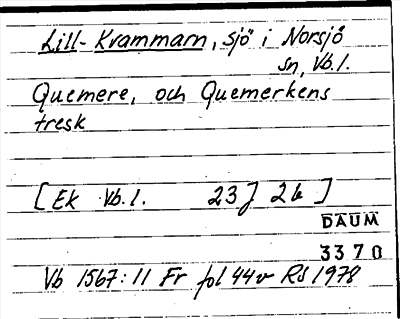 Lill-Krammarn, sjö i Norsjö
sn, Vb.l.
Quemere, och Quemerkens
tresk
[Ek Vb.l. 23J 2b]
DAUM
3370
Vb 1567:11 Fr fol 44v RS 1978